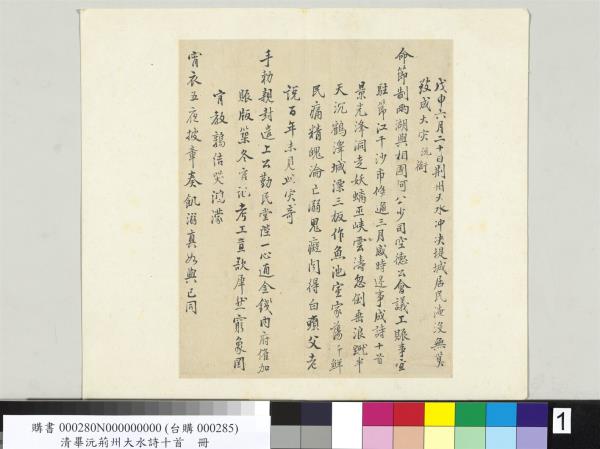 戊申六月二十日荆州大水冲决堤城居民淹沒無算
致成大灾沅銜
命節制兩湖與相國阿公少司空德公會議工賑事宜
駐節江干沙市倏過三月感時述事成詩十首
洚洞走妖螭巫峽雲濤忽倒垂浪蹴半
天沉鶴澤城漂三板作魚池室家蕩析鮮
民痛精魄淪亡溺鬼癡問得白頭父老
說百年未見此灾奇
手勅親封遣上公勤民堂陛一心通金錢內府催加
賑版築冬官記考工直欵犀然窮象罔
肯教鶉結哭鴻濛
宵衣五夜披章奏飢溺真如與己同
購書 000280N000000000 (台購 000285)
清畢沅荊州大水詩十首　冊
1